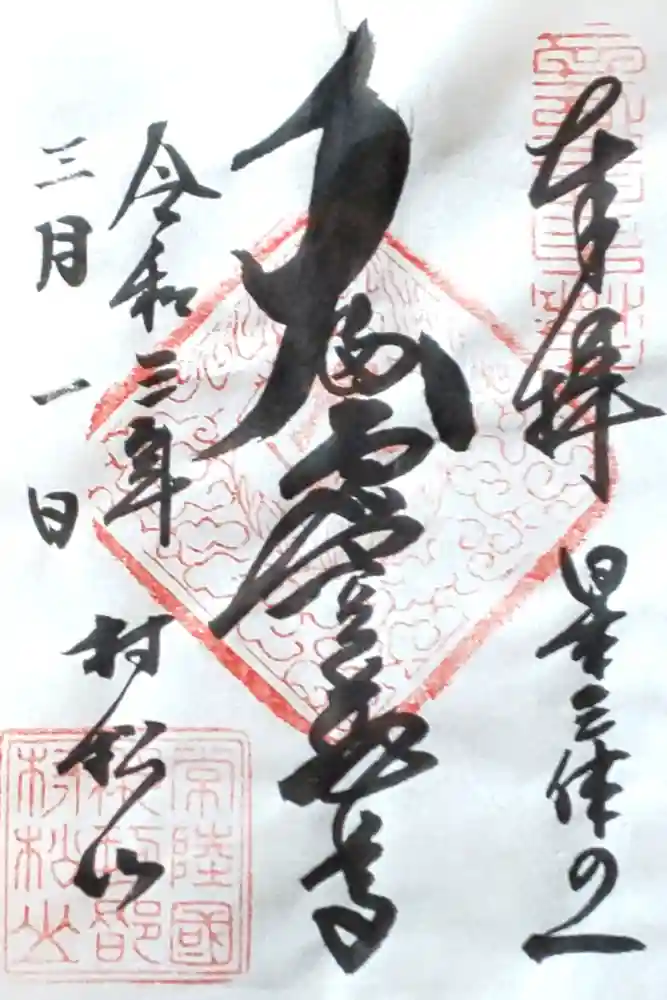 奉拝
日本三体の一
大満虚空蔵尊
令和三年
三月一日
村松山
常陸國
村松山